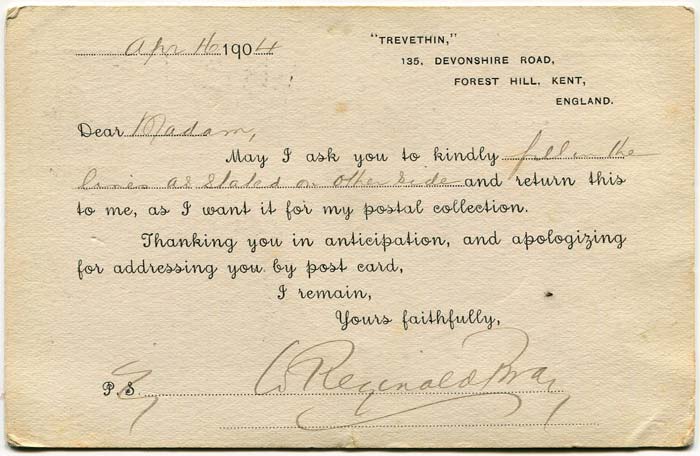 Apr 16 1904
"TREVETHIN,"
135, DEVONSHIRE ROAD,
FOREST HILL, KENT,
ENGLAND.
Dear Madam,
May I ask you to kindly fill in the
lines as stated on other side and return this
to me, as I want it for my postal collection.
Thanking you in anticipation, and apologizing
for addressing you by post card,
I remain,
Yours faithfully,
W Reginald Bray
P.S.